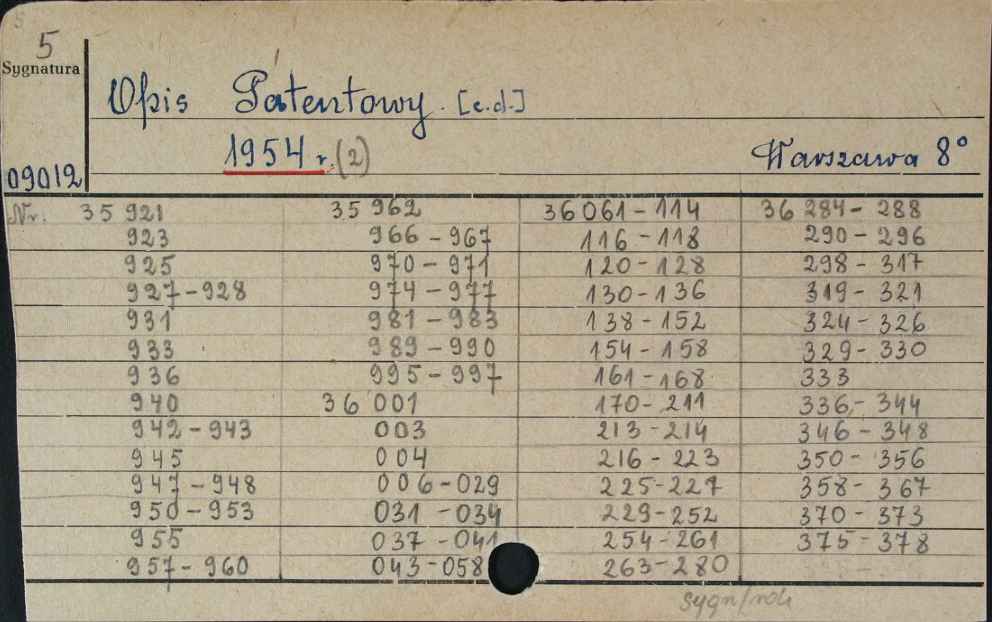 5
Sygnatura
Opis Patentowy. [c.d.]
1954 r. (2)
Warszawa 8°
09012
Nr. 35 921 35 962 36 061-114 36 284-288
923 966-967 116-118 290-296
925 970-971 120-128 298-317
927-928 974-977 130-136 319-321
931 981-983 138-152 324-326
933 989-990 154-158 329-330
936 995-997 161-168 333
940 36 001 170-211 336-344
942-943 003 213-214 346-348
945 004 216-223 350-356
947-948 006-029 225-227 358-367
950-953 031-034 229-252 370-373
955 037-041 254-261 375-378
957-960 043-058 263-280